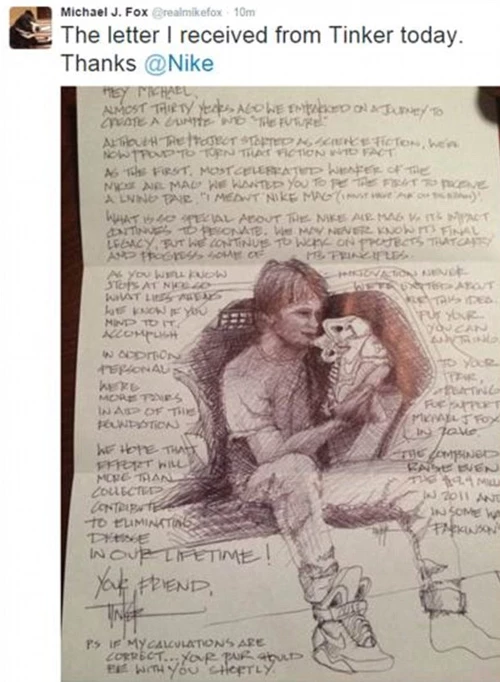 Michael J. Fox @realmikefox · 10m
The letter I received from Tinker today.
Thanks @Nike
HEY MICHAEL,
ALMOST THIRTY YEARS AGO WE EMBARKED ON A JOURNEY TO
CREATE A GLIMPSE INTO "THE FUTURE"
ALTHOUGH THE PROJECT STARTED AS SCIENCE FICTION, WE'RE
NOW PROUD TO TURN THAT FICTION INTO FACT
AS THE FIRST, MOST CELEBRATED WEARER OF THE
NIKE AIR MAG WE WANTED YOU TO BE THE FIRST TO RECEIVE
A LIVING PAIR, "I MEANT NIKE MAG"
WHAT IS SO SPECIAL ABOUT THE NIKE AIR MAG IS ITS IMPACT
CONTINUES TO RESONATE. WE MAY NEVER KNOW ITS FINAL
LEGACY, BUT WE CONTINUE TO WORK ON PROJECTS THAT CARRY
AND PROGRESS SOME OF ITS PRINCIPLES.
AS YOU WELL KNOW INNOVATION NEVER
STOPS AT NIKE SO WE'RE EXCITED ABOUT
WHAT LIES AHEAD THIS IDEA
WE KNOW IF YOU PUT YOUR
MIND TO IT, YOU CAN
ACCOMPLISH ANYTHING
IN ADDITION TO YOUR
PERSONAL PAIR,
WE'RE CREATING
MORE PAIRS FOR SUPPORT
IN AID OF THE MICHAEL J FOX
FOUNDATION IN
WE HOPE THAT THE COMBINED
EFFORT WILL RAISE EVEN
MORE THAN THE
COLLECTED IN 2011 AND
CONTRIBUTE IN SOME WA
TO ELIMINATING PARKINSON
DISEASE
IN OUR LIFETIME!
YOUR FRIEND,
TINKER
PS IF MY CALCULATIONS ARE
CORRECT... YOUR PAIR SHOULD
BE WITH YOU SHORTLY.